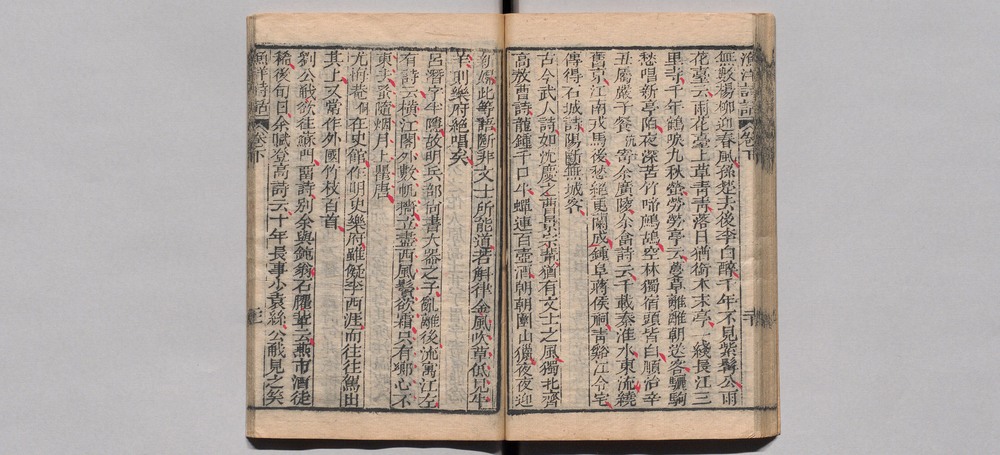 漁洋詩話 卷下 二十
無數楊柳迎春風孫楚去後李白醉千年不見紫髯公雨
花臺云雨花臺上草青青落日猶銜木末亭一綫長江三
里寺千年鶴唳九秋螢勞勞亭云蔓草離離朝送客驪駒
愁唱新亭陌夜深苦竹啼鷓鴣空林獨宿頭皆白順治辛
丑屬嚴子餐沆寄余廣陵余畣詩云千載秦淮水東流繞
舊京江南戎馬後愁絕更闌成鍾阜蔣侯祠青谿江令宅
傳得石城詩腸斷蕪城客
古今武人詩如沈慶之曹景宗輩猶有文士之風獨北齊
高敖曹詩龍鍾千口牛蟬連百壺酒朝朝圍山獵夜夜迎
新婦此等語斷非文士所能道若斛律金風吹草低見牛
羊則樂府絕唱矣
呂潛字半隱故明兵部尚書大器之子亂離後流寓江左
有詩云橫江閣外數帆檣立盡西風鬢欲霜只有鄉心不
東去蚤隨烟月上瞿唐
尤悔菴侗在史館作明史樂府雖儗李西涯而往往駕出
其上又常作外國竹枝百首
劉公㦷欲往蘇門留詩別余與鈍翁石臞輩云燕市酒徒
稀後旬日余賦登高詩云十年長事少袁絲公㦷見之笑
漁洋詩話 卷下